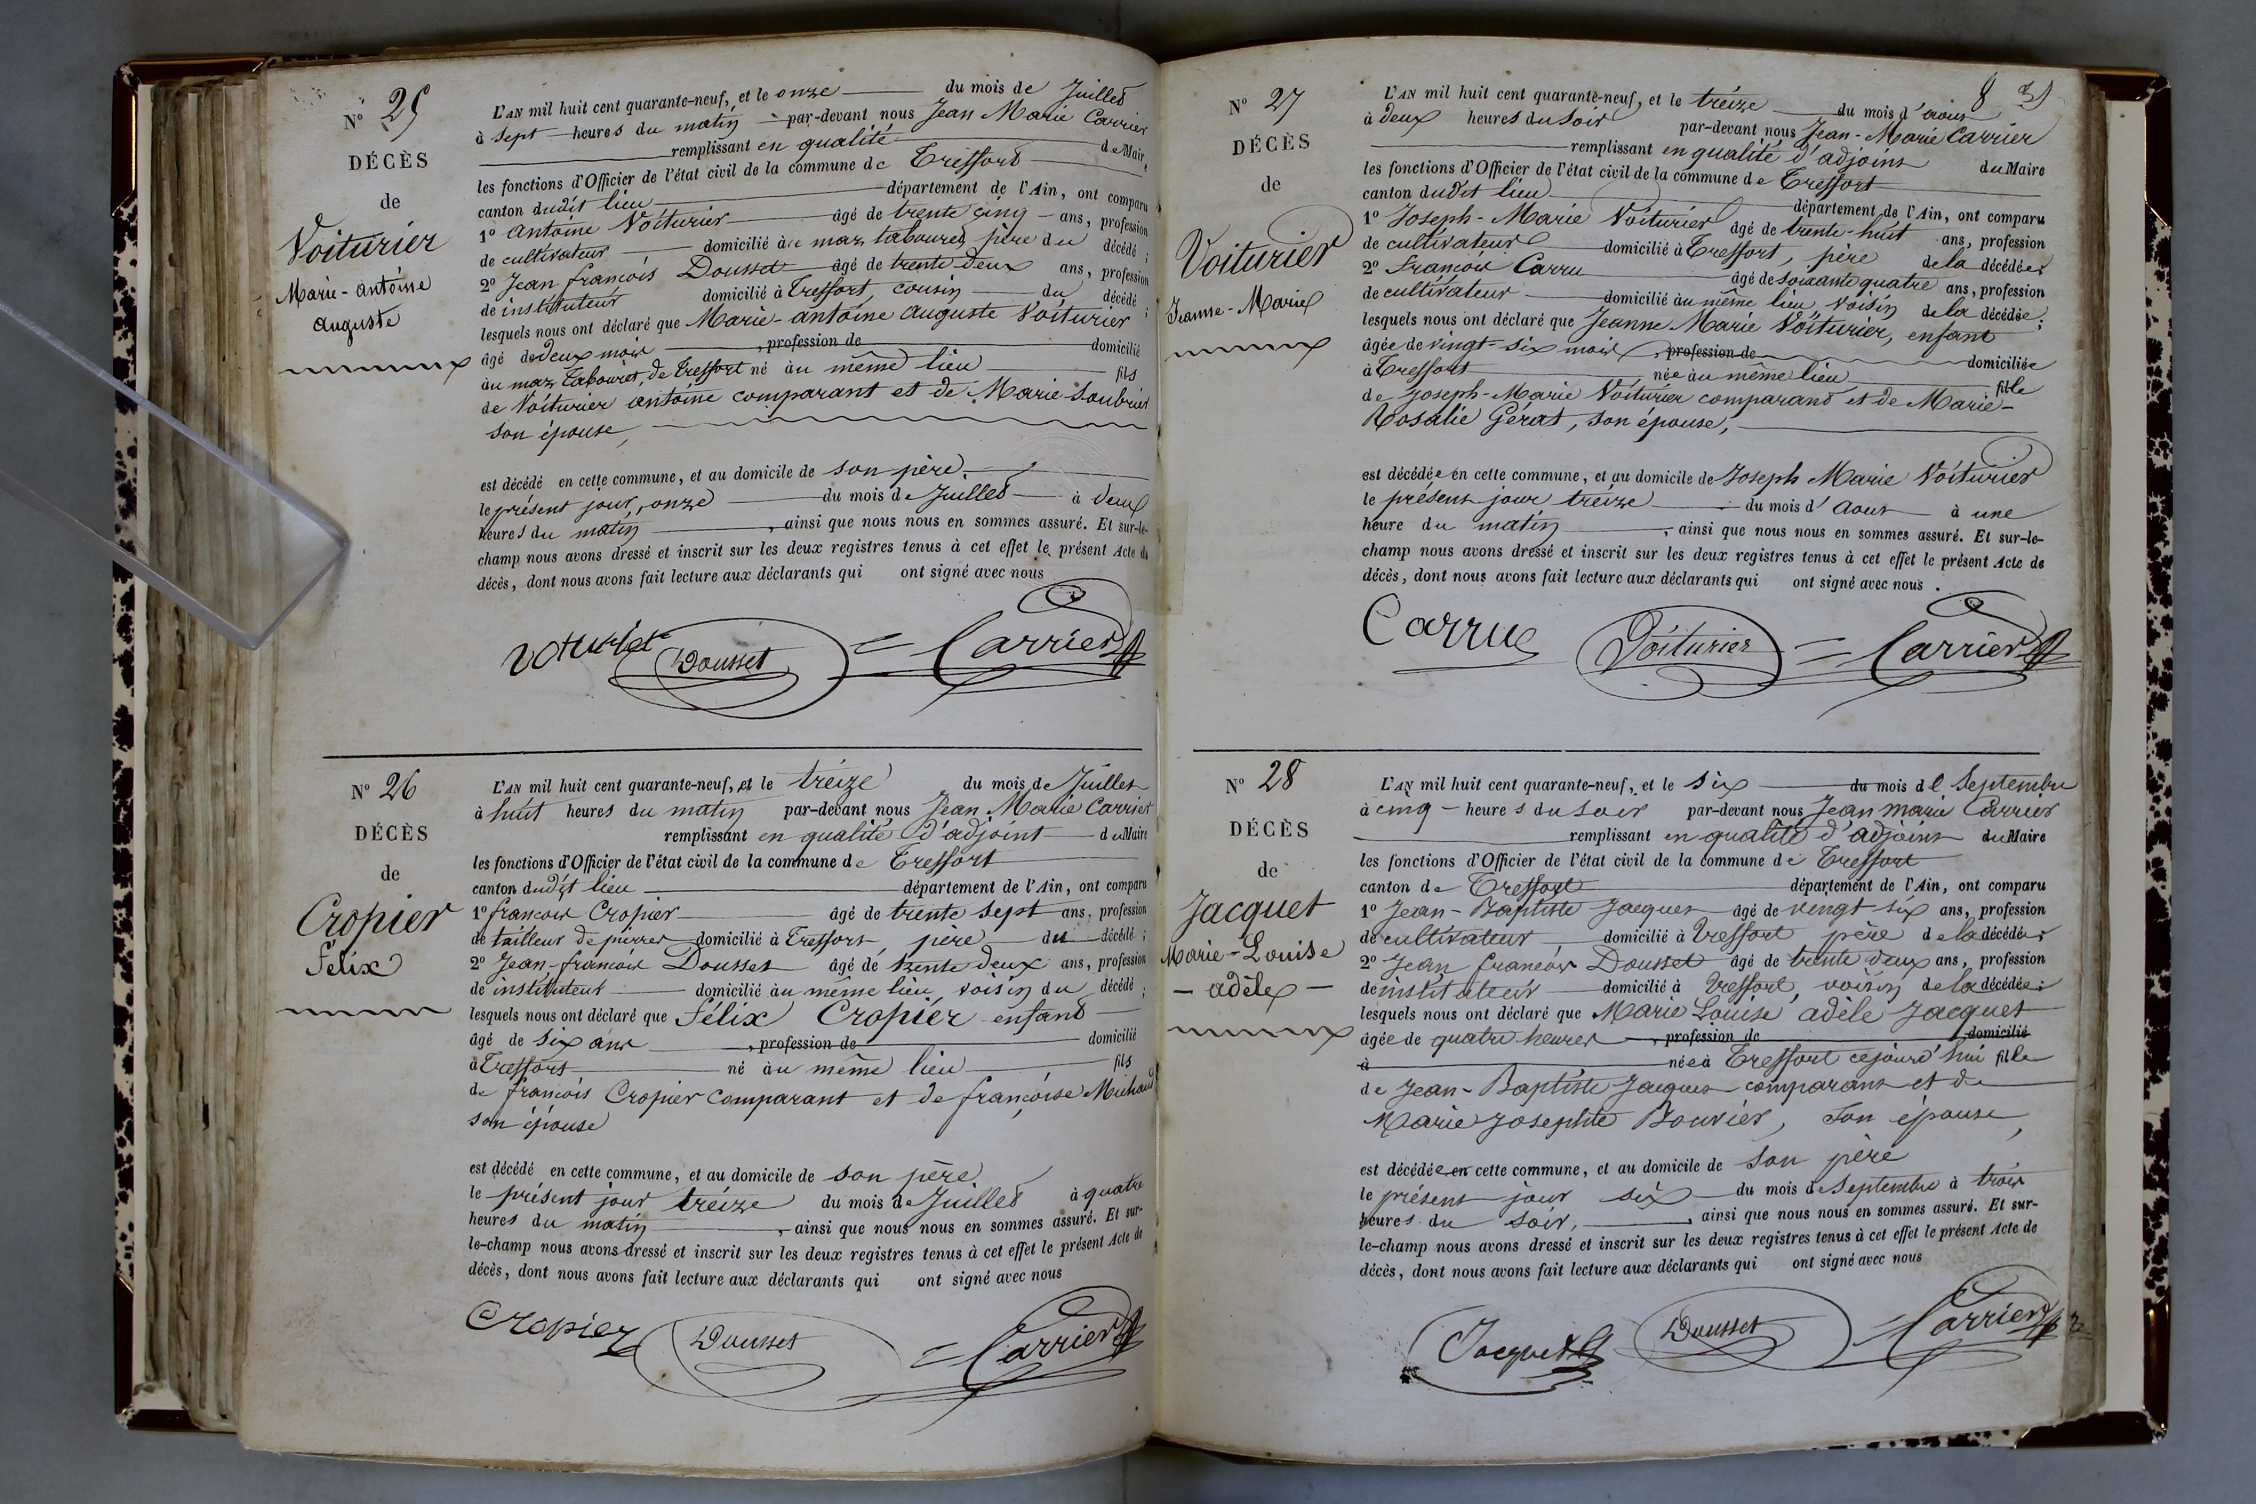 N° 25
DÉCÈS
de
Voiturier
Marie-antoine
auguste
L'AN mil huit cent quarante-neuf, et le onze du mois de Juillet
à sept heures du matin par-devant nous Jean Marie Carrier
remplissant en qualité de Maire
les fonctions d'Officier de l'état civil de la commune de Treffort
canton dudit lieu département de l'Ain, ont comparu
1° antoine Voiturier âgé de trente cinq ans, profession
de cultivateur domicilié au maz tabouret, père du décédé;
2° Jean françois Dousset âgé de trente deux ans, profession
de instituteur domicilié à Treffort, cousin du décédé;
lesquels nous ont déclaré que Marie-antoine auguste Voiturier
âgé de deux mois, profession de domicilié
au maz Tabouret, de Treffort né au même lieu fils
de Voiturier antoine comparant et de Marie Soubrier
son épouse,
est décédé en cette commune, et au domicile de son père
le présent jour, onze du mois de Juillet à deux
heures du matin, ainsi que nous nous en sommes assuré. Et sur-le-
champ nous avons dressé et inscrit sur les deux registres tenus à cet effet le présent Acte de
décès, dont nous avons fait lecture aux déclarants qui ont signé avec nous
Dousset Carrier
N° 26
DÉCÈS
de
Cropier
Félix
L'AN mil huit cent quarante-neuf, et le treize du mois de Juillet
à huit heures du matin par-devant nous Jean Marie Carrier
remplissant en qualité d'adjoint du Maire
les fonctions d'Officier de l'état civil de la commune de Treffort
canton dudit lieu département de l'Ain, ont comparu
1° françois Cropier âgé de trente sept ans, profession
de tailleur de pierres domicilié à Treffort, père du décédé;
2° Jean-françois Dousset âgé de trente deux ans, profession
de instituteur domicilié au même lieu, voisin du décédé;
lesquels nous ont déclaré que Félix Cropier enfant
âgé de six ans, profession de domicilié
à Treffort né au même lieu fils
de françois Cropier comparant et de françoise Michaud
son épouse
est décédé en cette commune, et au domicile de son père
le présent jour treize du mois de Juillet à quatre
heures du matin, ainsi que nous nous en sommes assuré. Et sur-
le-champ nous avons dressé et inscrit sur les deux registres tenus à cet effet le présent Acte de
décès, dont nous avons fait lecture aux déclarants qui ont signé avec nous
Cropier Dousset Carrier
8
N° 27
DÉCÈS
de
Voiturier
Jeanne-Marie
L'AN mil huit cent quarante-neuf, et le treize du mois d'aout
à deux heures du soir par-devant nous Jean-Marie Carrier
remplissant en qualité d'adjoint du Maire
les fonctions d'Officier de l'état civil de la commune de Treffort
canton dudit lieu département de l'Ain, ont comparu
1° Joseph-Marie Voiturier âgé de trente-huit ans, profession
de cultivateur domicilié à Treffort, père de la décédée;
2° françois Carru âgé de soixante quatre ans, profession
de cultivateur domicilié au même lieu, voisin de la décédée;
lesquels nous ont déclaré que Jeanne Marie Voiturier, enfant
âgée de vingt-six mois, profession de domiciliée
à Treffort née au même lieu fille
de Joseph-Marie Voiturier comparant et de Marie-
Rosalie Gérat, son épouse,
est décédée en cette commune, et au domicile de Joseph Marie Voiturier
le présent jour treize du mois d'aout à une
heure du matin, ainsi que nous nous en sommes assuré. Et sur-le-
champ nous avons dressé et inscrit sur les deux registres tenus à cet effet le présent Acte de
décès, dont nous avons fait lecture aux déclarants qui ont signé avec nous.
Carru Voiturier Carrier
N° 28
DÉCÈS
de
Jacquet
Marie-Louise
-adèle-
L'AN mil huit cent quarante-neuf, et le six du mois de Septembre
à cinq heures du soir par-devant nous Jean marie Carrier
remplissant en qualité d'adjoint du Maire
les fonctions d'Officier de l'état civil de la commune de Treffort
canton de Treffort département de l'Ain, ont comparu
1° Jean-Baptiste Jacquet âgé de vingt six ans, profession
de cultivateur domicilié à Treffort père de la décédée;
2° Jean françois Dousset âgé de trente deux ans, profession
de instituteur domicilié à Treffort, voisin de la décédée;
lesquels nous ont déclaré que Marie Louise adèle Jacquet
âgée de quatre heures, profession de domicilié
à née à Treffort cejourd'hui fille
de Jean-Baptiste Jacquet comparant et de
Marie Josephte Bouvier, son épouse,
est décédée en cette commune, et au domicile de son père
le présent jour six du mois de Septembre à trois
heures du soir, ainsi que nous nous en sommes assuré. Et sur-
le-champ nous avons dressé et inscrit sur les deux registres tenus à cet effet le présent Acte de
décès, dont nous avons fait lecture aux déclarants qui ont signé avec nous
Jacquet Dousset Carrier